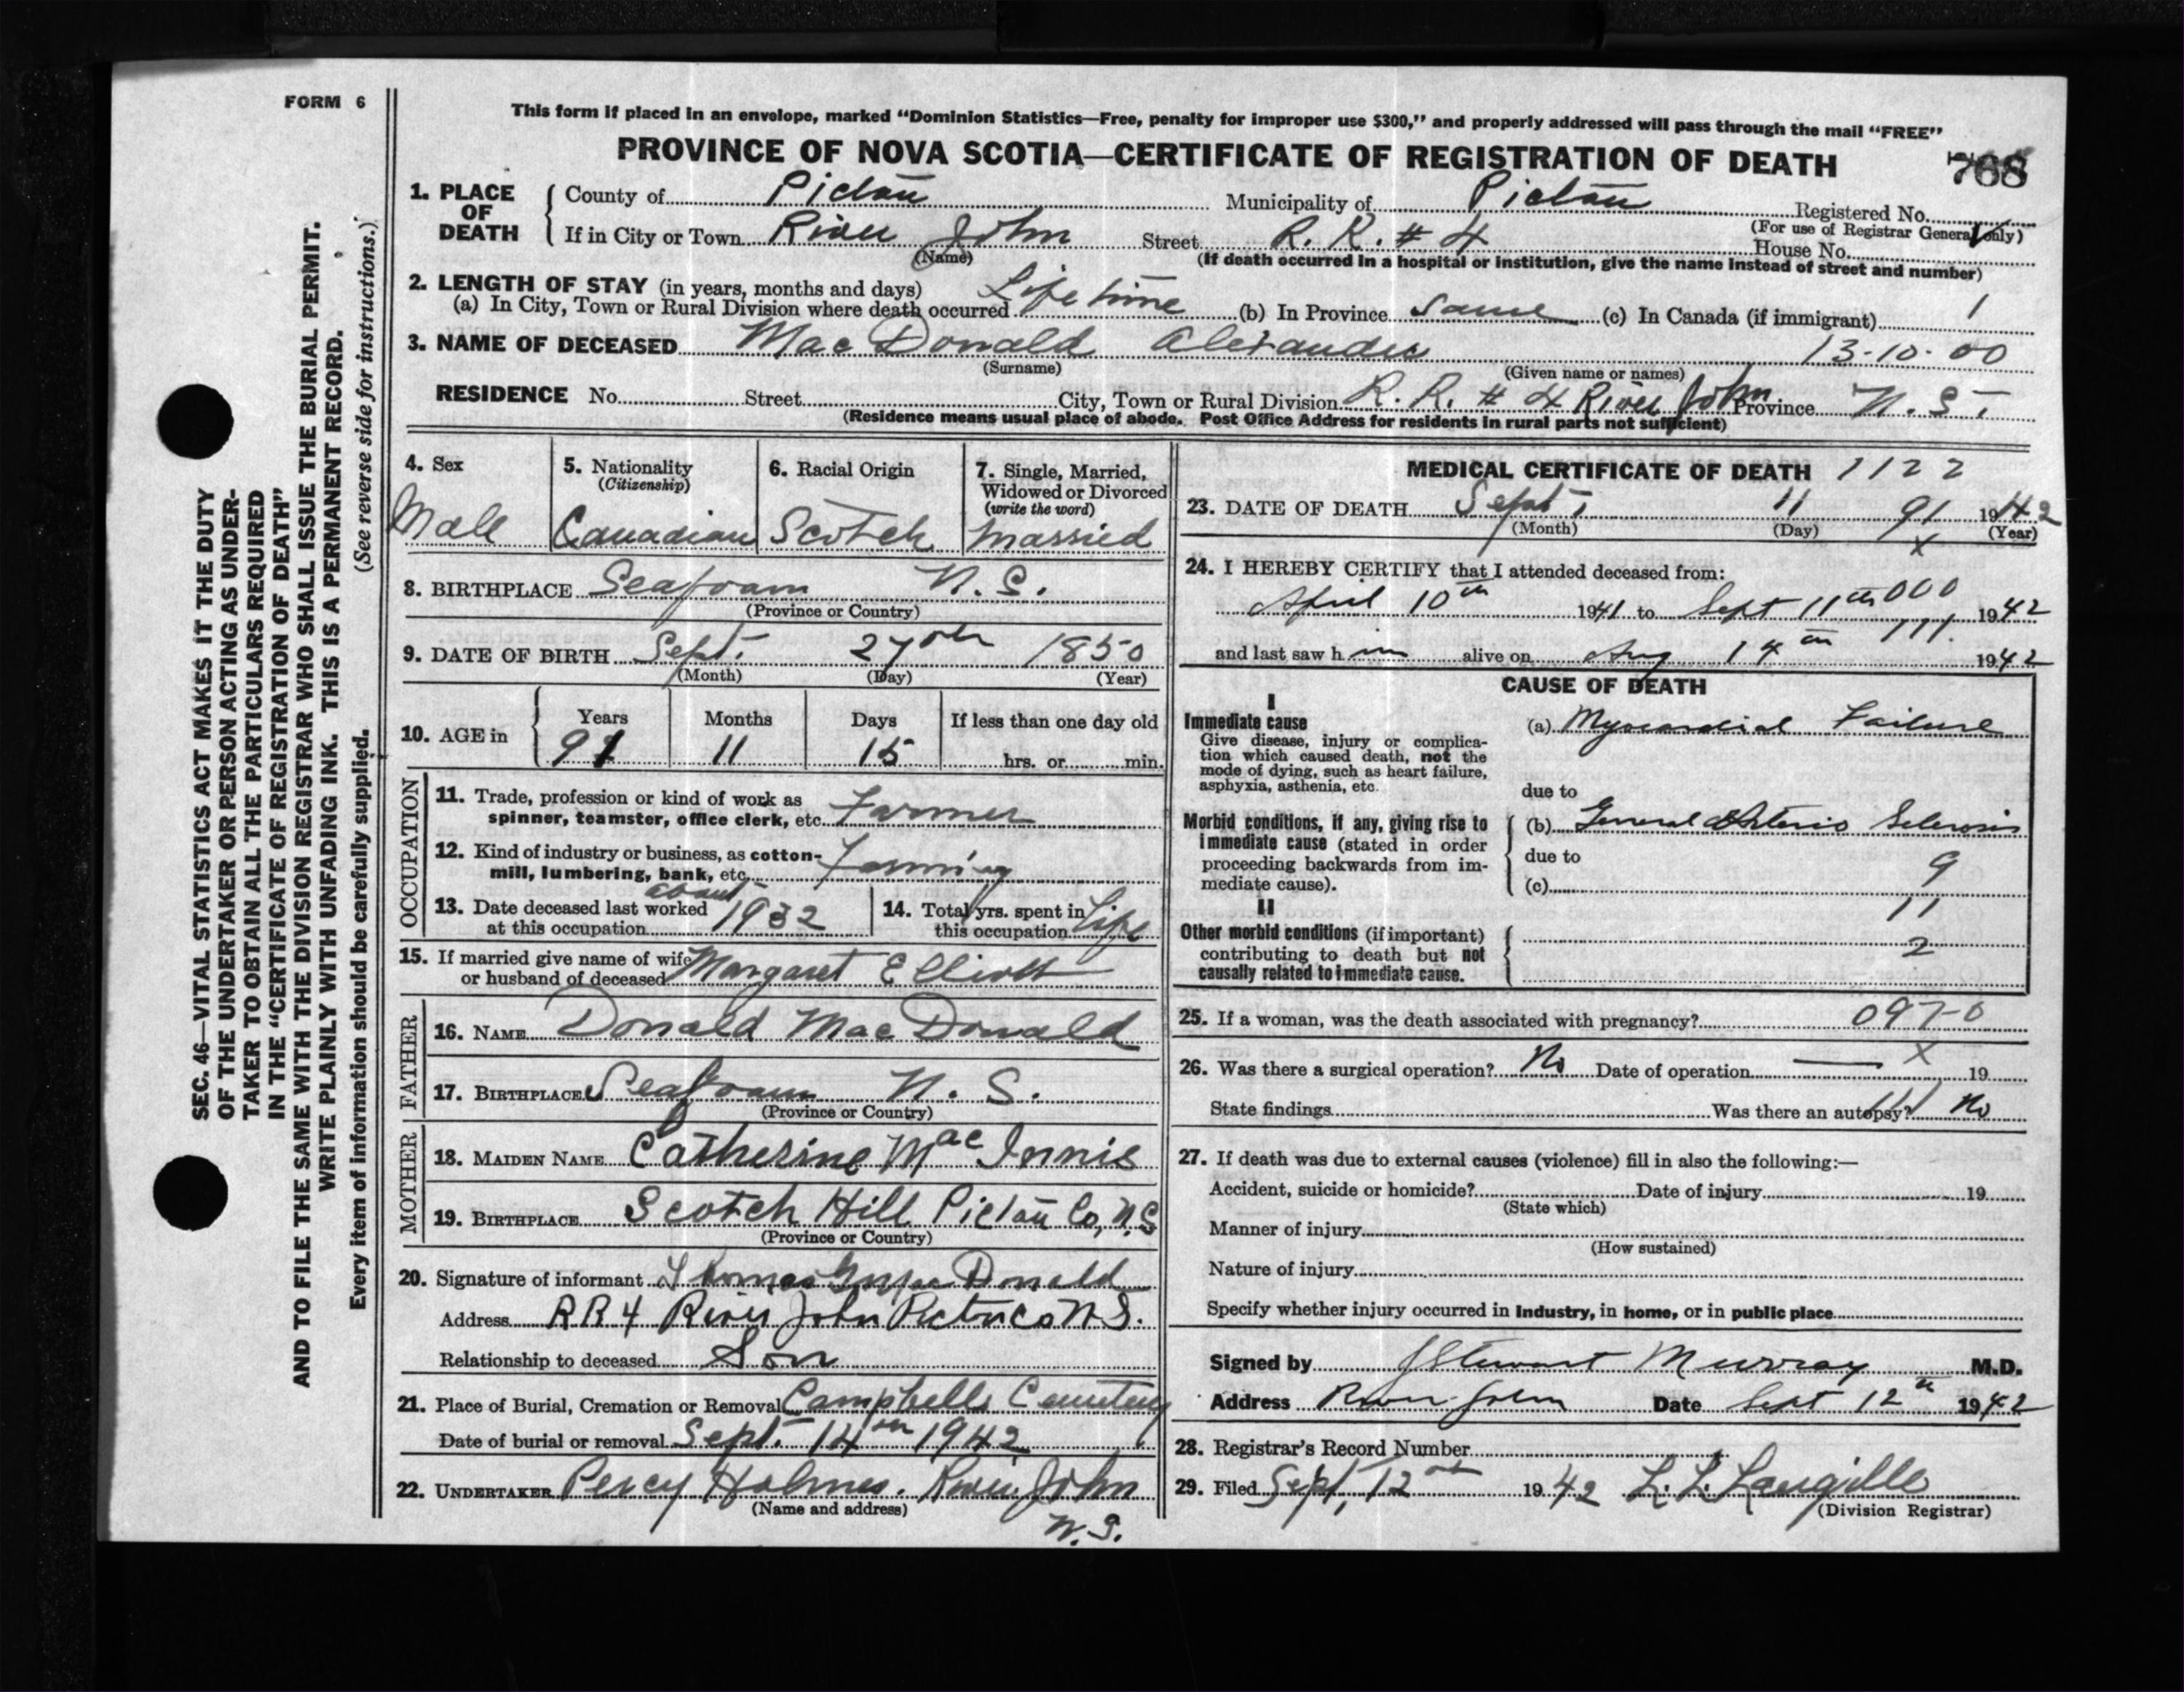 FORM 6
This form if placed in an envelope, marked "Dominion Statistics—Free, penalty for improper use $300," and properly addressed will pass through the mail "FREE"
PROVINCE OF NOVA SCOTIA—CERTIFICATE OF REGISTRATION OF DEATH 768
1. PLACE OF DEATH
County of Pictou Municipality of Pictou Registered No.
(For use of Registrar General only)
If in City or Town River John Street R. R. # 4 House No.
(Name) (If death occurred in a hospital or institution, give the name instead of street and number)
2. LENGTH OF STAY (in years, months and days)
(a) In City, Town or Rural Division where death occurred Life time (b) In Province same (c) In Canada (if immigrant) 1
3. NAME OF DECEASED MacDonald Alexander 13-10-00
(Surname) (Given name or names)
RESIDENCE No. Street City, Town or Rural Division R. R. # 4 River John Province N. S.
(Residence means usual place of abode. Post Office Address for residents in rural parts not sufficient)
4. Sex
Male
5. Nationality
(Citizenship)
Canadian
6. Racial Origin
Scotch
7. Single, Married,
Widowed or Divorced
(write the word)
Married
8. BIRTHPLACE Seafoam N. S.
(Province or Country)
9. DATE OF BIRTH Sept. 27th 1850
(Month) (Day) (Year)
10. AGE in
Years Months Days If less than one day old
91 11 15 hrs. or min.
OCCUPATION
11. Trade, profession or kind of work as
spinner, teamster, office clerk, etc. Farmer
12. Kind of industry or business, as cotton-
mill, lumbering, bank, etc. Farming
13. Date deceased last worked
at this occupation about 1932
14. Total yrs. spent in
this occupation Life
15. If married give name of wife
or husband of deceased Margaret Elliott
FATHER
16. NAME Donald MacDonald
17. BIRTHPLACE Seafoam N. S.
(Province or Country)
MOTHER
18. MAIDEN NAME Catherine MacInnis
19. BIRTHPLACE Scotch Hill Pictou Co, N.S
(Province or Country)
20. Signature of informant Thomas Donald
Address RR4 River John Pictou Co N.S.
Relationship to deceased Son
21. Place of Burial, Cremation or Removal Campbells Cemetery
Date of burial or removal Sept. 14th 1942
22. UNDERTAKER Percy Holmes. River John
(Name and address)
N. S.
MEDICAL CERTIFICATE OF DEATH 1122
23. DATE OF DEATH Sept. 11 91 1942
(Month) (Day) (Year)
x
24. I HEREBY CERTIFY that I attended deceased from:
April 10th 1941 to Sept 11th 000 1942
111.
and last saw him alive on Aug 14th 1942
CAUSE OF DEATH
I
Immediate cause
Give disease, injury or complica-
tion which caused death, not the
mode of dying, such as heart failure,
asphyxia, asthenia, etc.
(a) Myocardial Failure
due to
Morbid conditions, if any, giving rise to
immediate cause (stated in order
proceeding backwards from im-
mediate cause).
(b) General Arterio Sclerosis
due to
9
(c)
11
II
Other morbid conditions (if important)
contributing to death but not
causally related to immediate cause.
2
25. If a woman, was the death associated with pregnancy? 097-0
26. Was there a surgical operation? No Date of operation — X 19
State findings Was there an autopsy? No
27. If death was due to external causes (violence) fill in also the following:—
Accident, suicide or homicide? Date of injury 19
(State which)
Manner of injury
(How sustained)
Nature of injury
Specify whether injury occurred in industry, in home, or in public place
Signed by J Stewart Murray M.D.
Address River John Date Sept 12th 1942
28. Registrar's Record Number
29. Filed Sept, 12th 1942 L. L. Langille
(Division Registrar)
SEC. 46—VITAL STATISTICS ACT MAKES IT THE DUTY
OF THE UNDERTAKER OR PERSON ACTING AS UNDER-
TAKER TO OBTAIN ALL THE PARTICULARS REQUIRED
IN THE "CERTIFICATE OF REGISTRATION OF DEATH"
AND TO FILE THE SAME WITH THE DIVISION REGISTRAR WHO SHALL ISSUE THE BURIAL PERMIT.
WRITE PLAINLY WITH UNFADING INK. THIS IS A PERMANENT RECORD.
Every item of information should be carefully supplied. (See reverse side for instructions.)